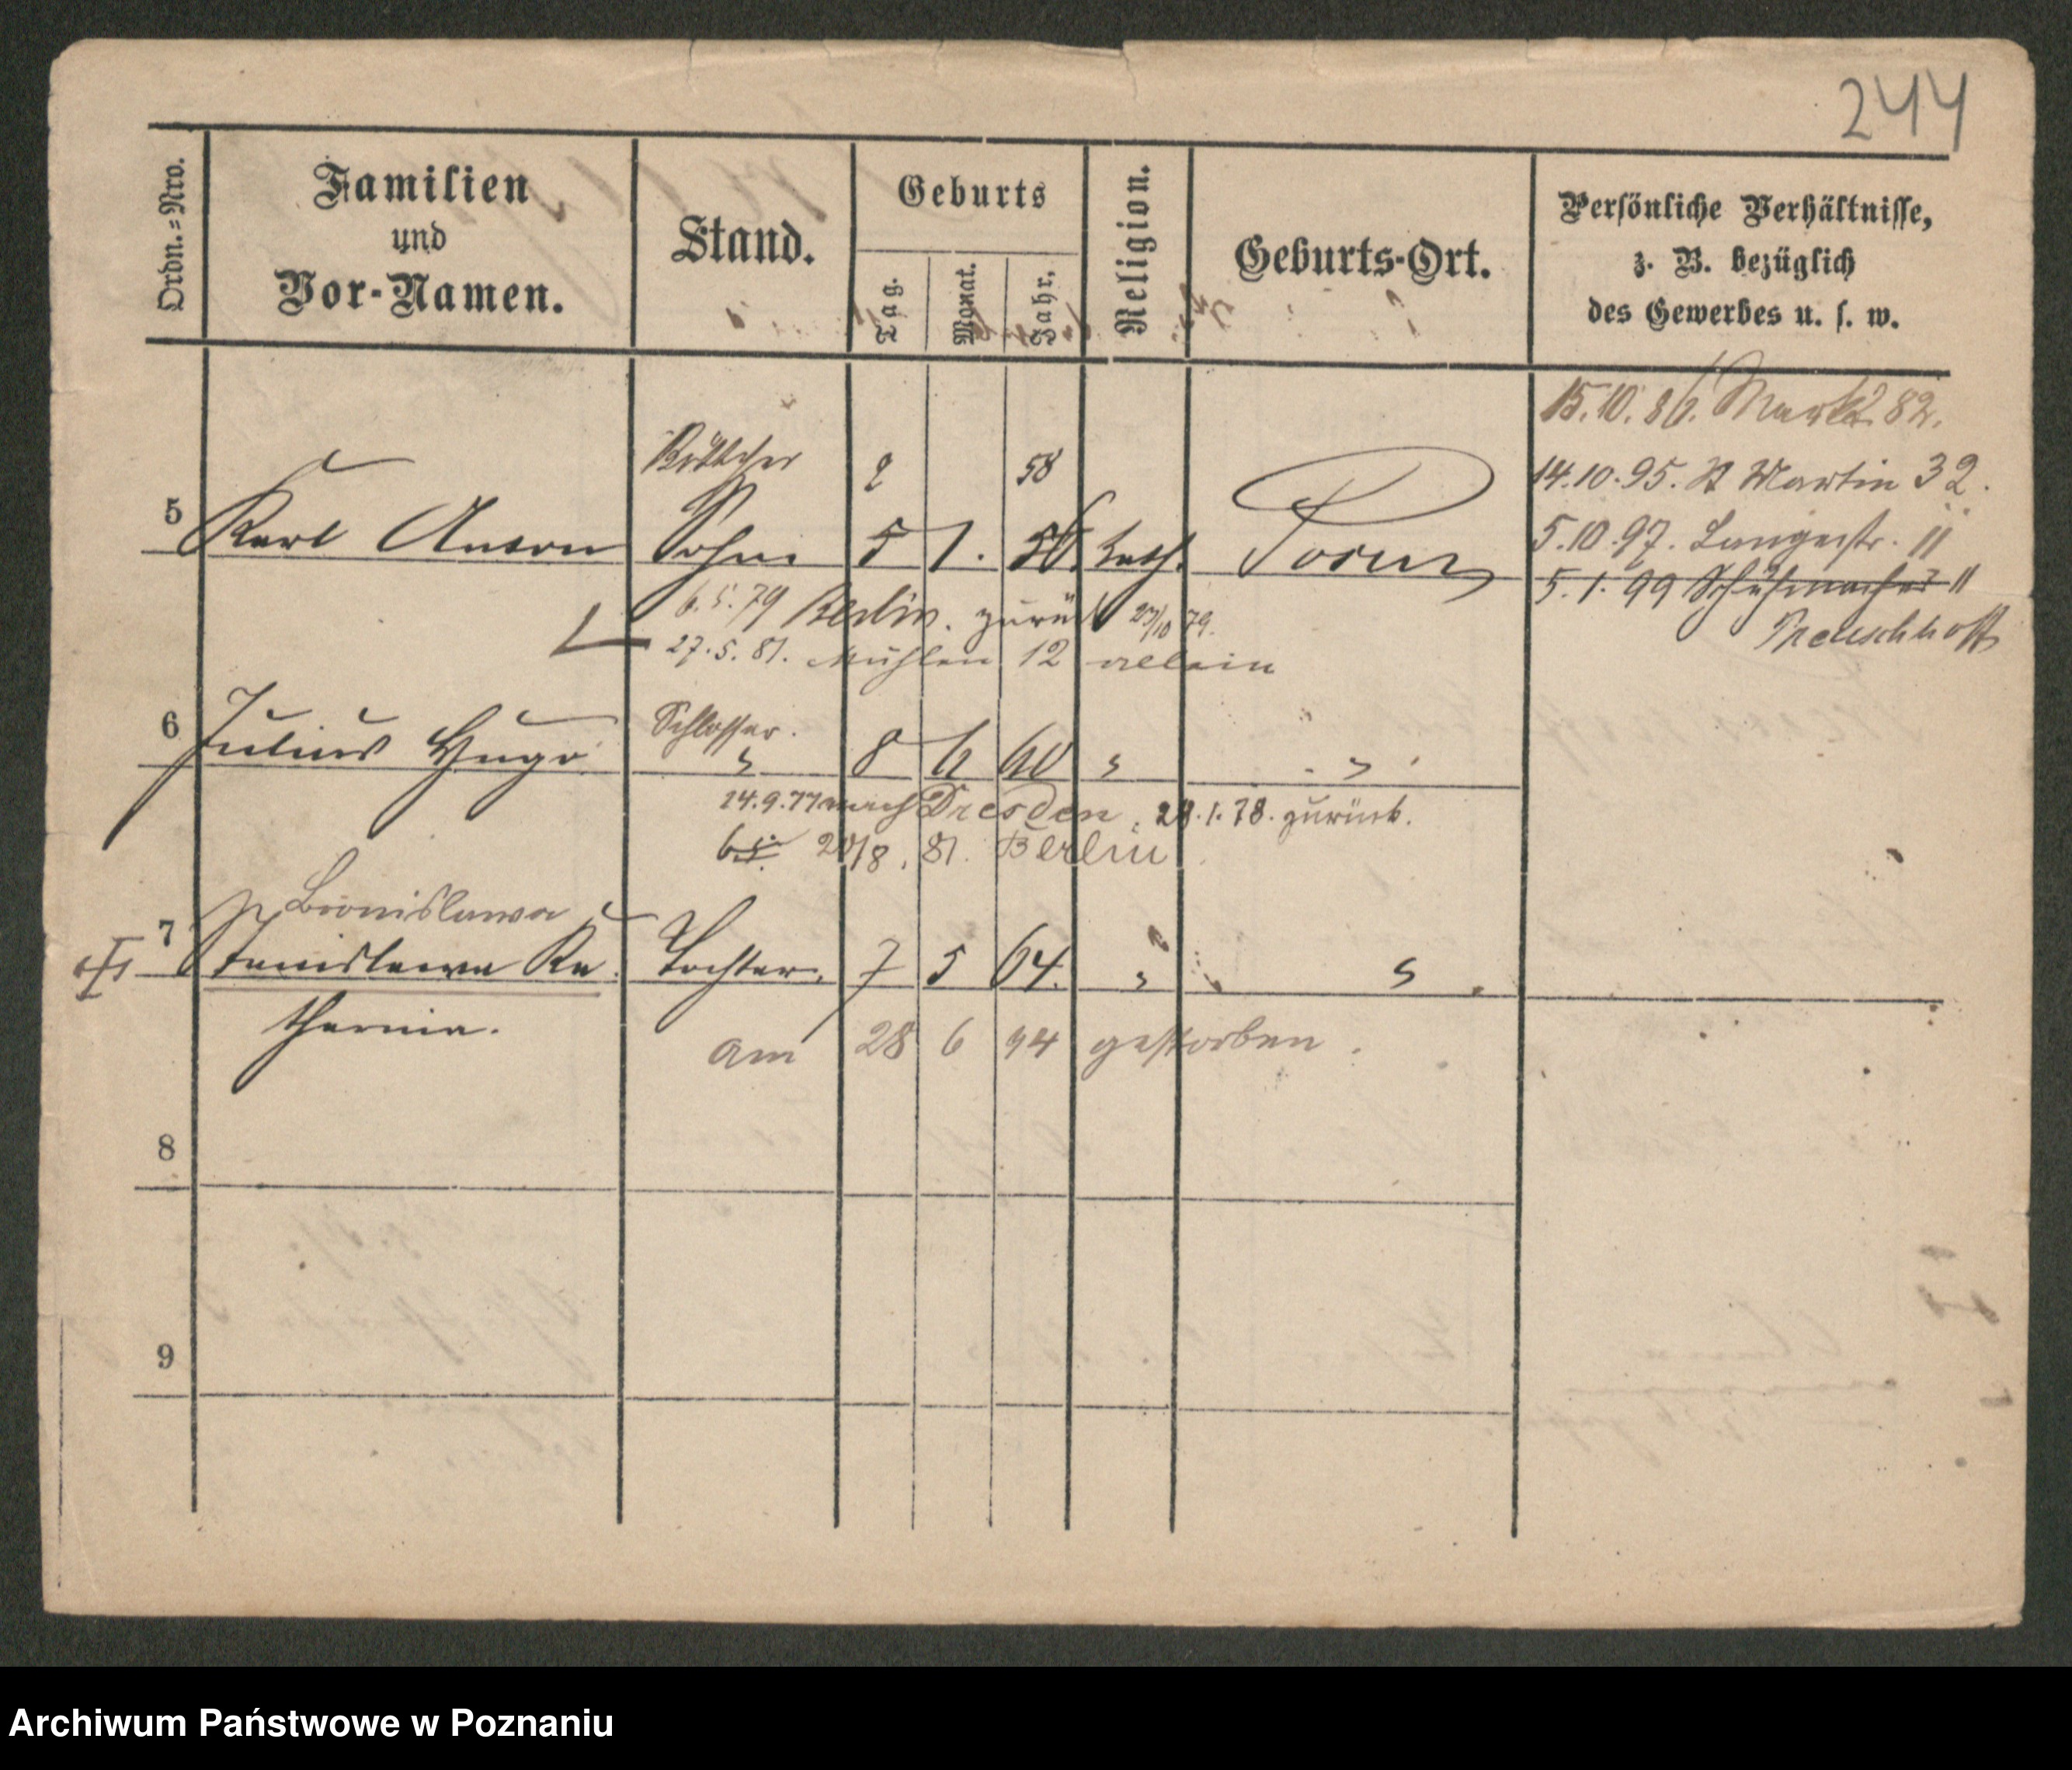 244
Ordn.-Nro.
Familien
und
Vor-Namen.
Stand.
Geburts
Tag.
Monat.
Jahr.
Religion.
Geburts-Ort.
Persönliche Verhältnisse,
z. B. bezüglich
des Gewerbes u. s. w.
15.10.86. Markt 82.
Böttcher 2 58
14.10.95. St Martin 32.
5 Karl Anton Sohn 5 1. 56. kath. Posen
5.10.97. Langestr. 11
5.1.99 Schuhmacher 11
6.5.79 Berlin. zurück 23/10 79.
27.5.81. Mühlen 12 allein
Schlosser.
6 Julius Hugo " 8 6 60 " "
14.9.77 nach Dresden. 28.1.78. zurück.
20/8. 81. Berlin
Bronislawa
7 Stanislawa Ka Tochter. 7 5 64. " "
tharina.
am 28 6 94 gestorben.
8
9
Archiwum Państwowe w Poznaniu